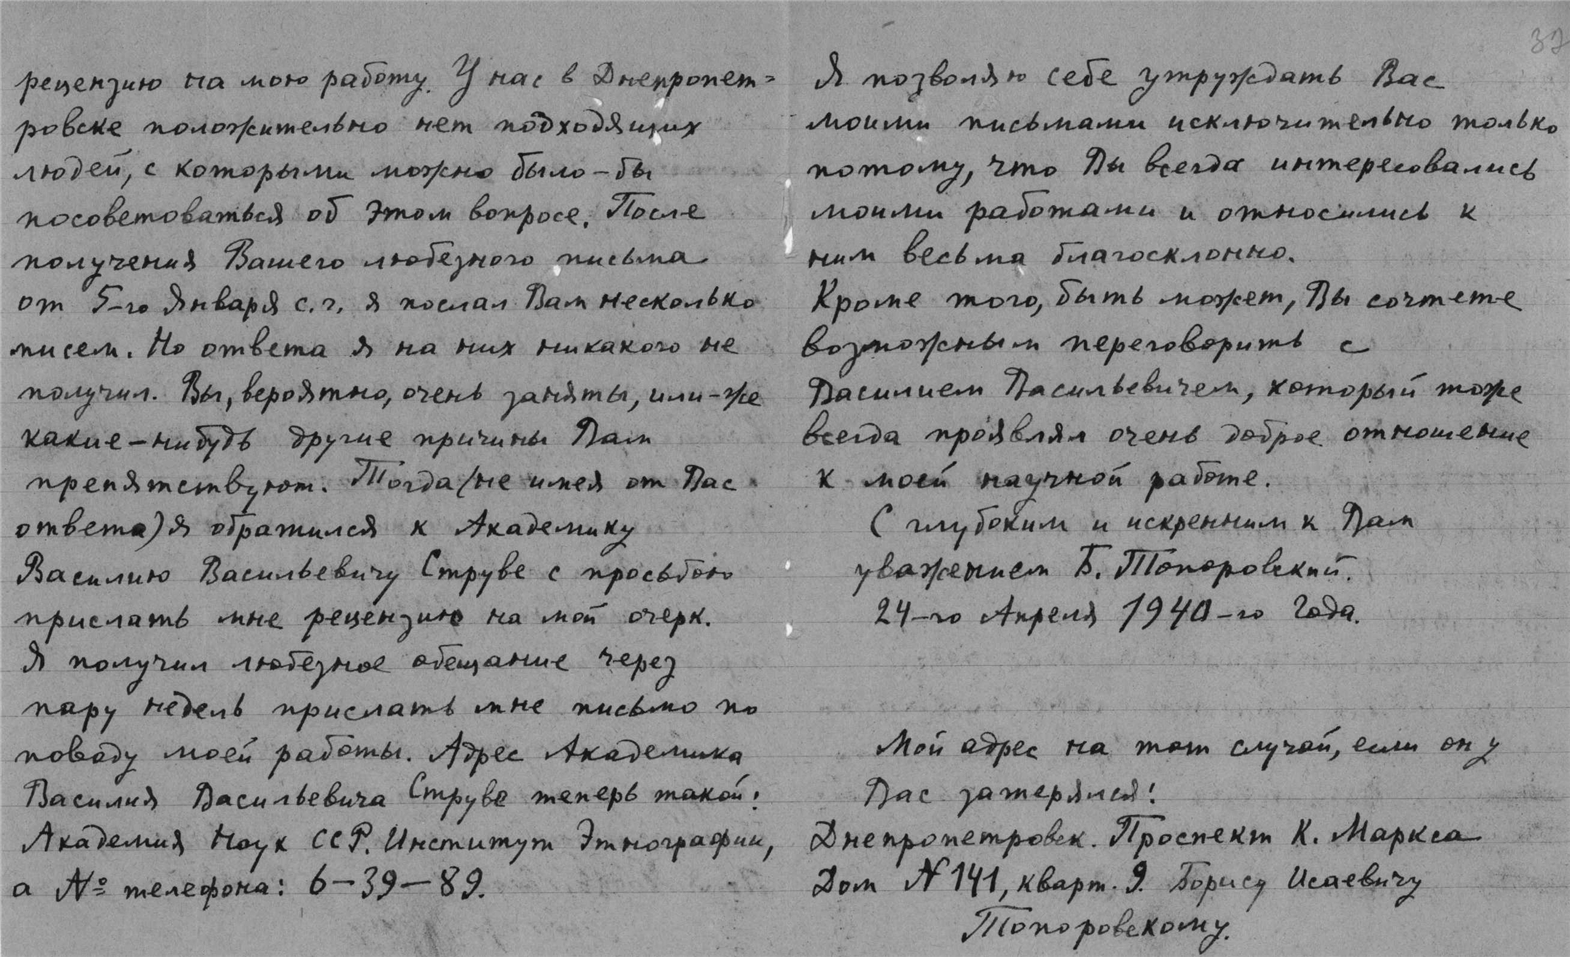 рецензию на мою работу. У нас в Днепропет=
ровске положительно нет подходящих
людей, с которыми можно было-бы
посоветоваться об этом вопросе. После
получения Вашего любезного письма
от 5-го Января с.г. я послал Вам несколько
писем. Но ответа я на них никакого не
получил. Вы, вероятно, очень заняты, или-же
какие-нибудь другие причины Вам
препятствуют. Тогда (не имея от Вас
ответа) я обратился к Академику
Василию Васильевичу Струве с просьбою
прислать мне рецензию на мой очерк.
Я получил любезное обещание через
пару недель прислать мне письмо по
поводу моей работы. Адрес Академика
Василия Васильевича Струве теперь такой:
Академия Наук ССР. Институт Этнографии,
а № телефона: 6-39-89.
37
Я позволяю себе утруждать Вас
моими письмами исключительно только
потому, что Вы всегда интересовались
моими работами и относились к
ним весьма благосклонно.
Кроме того, быть может, Вы сочтете
возможным переговорить с
Василием Васильевичем, который тоже
всегда проявлял очень доброе отношение
к моей научной работе.
С глубоким и искренним к Вам
уважением Б. Топоровский.
24-го Апреля 1940-го Года.
Мой адрес на тот случай, если он у
Вас затерялся!
Днепропетровск. Проспект К. Маркса
Дом N 141, кварт. 9. Борису Исаевичу
Топоровскому.